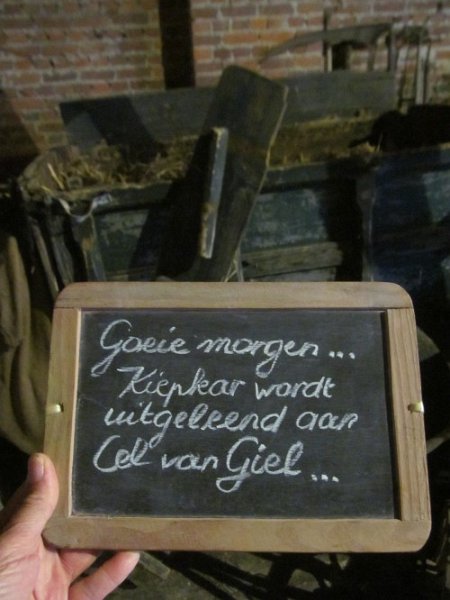 Goeie morgen ...
Kiepkar wordt
uitgeleend aan
Cel van Giel ...